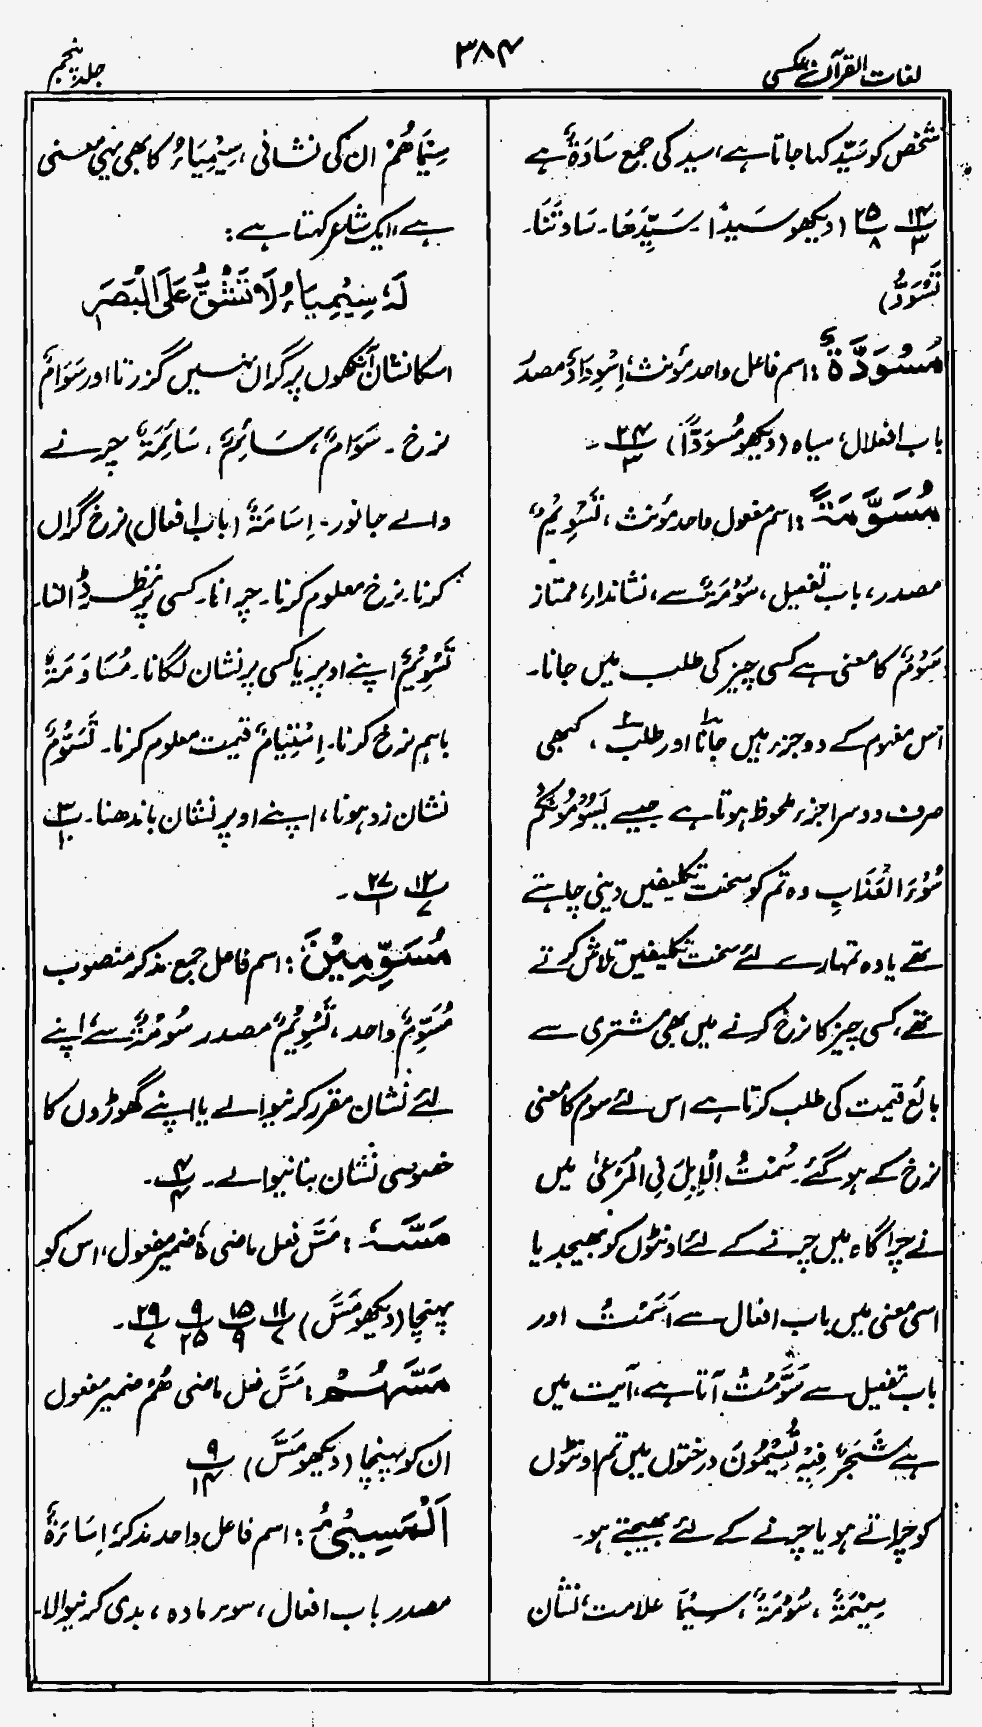 لغات القرآن عکسی
۳۸۴
جلد پنجم
شخص کو سَیِّد کہا جاتا ہے، سید کی جمع سَادَۃٌ ہے
۱۴/۳ ۲۵/۸ (دیکھو سَیِّدًا۔ سَیِّدَھَا۔ سَادَتَنَا۔
تَسْوَدُّ)
مُسْوَدَّۃٌ: اسم فاعل واحد مؤنث، اِسْوِدَادٌ مصدر
باب افعلال، سیاہ (دیکھو مُسْوَدًّا) ۲۴/۳۔
مُسَوَّمَۃً: اسم مفعول واحد مؤنث، تَسْوِیْمٌ
مصدر، باب تفعیل، سُوْمَۃٌ سے، نشاندار، ممتاز
سَوْمٌ کا معنی ہے کسی چیز کی طلب میں جانا۔
اس مفہوم کے دو جزر ہیں جانا اور طلب، کبھی
صرف دوسرا جزء ملحوظ ہوتا ہے جیسے یَسُوْمُوْنَکُمْ
سُوْٓءَ الْعَذَابِ وہ تم کو سخت تکلیفیں دینی چاہتے
تھے یا وہ تمہارے لئے سخت تکلیفیں تلاش کرتے
تھے، کسی چیز کا نرخ کرنے میں بھی مشتری سے
بائع قیمت کی طلب کرتا ہے اس لئے سوم کا معنی
نرخ کے ہو گئے۔ سُمْتُ الْاِبِلَ فِی الْمَرْعٰی میں
نے چراگاہ میں چرنے کے لئے اونٹوں کو بھیجدیا
اسی معنی میں باب افعال سے اَسَمْتُ اور
باب تفعیل سے سَوَّمْتُ آتا ہے، آیت میں
ہے شَجَرٌ فِیْہِ تُسِیْمُوْنَ درختوں میں تم اونٹوں
کو چراتے ہو یا چرنے کے لئے بھیجتے ہو۔
سِیْمَۃٌ، سُوْمَۃٌ، سِیْمَا علامت، نشان
سِیْمَاھُمْ ان کی نشانی، سِیْمِیَاءُ کا بھی یہی معنی
ہے، ایک شاعر کہتا ہے:
لَہٗ سِیْمِیَاءُ لَا تَشُقُّ عَلَی الْبَصَرِ
اسکا نشان آنکھوں پر گراں نہیں گزرتا اور سَوَامٌ
نرخ۔ سَوَامٌ، سَائِمٌ، سَائِمَۃٌ چرنے
والے جانور۔ اِسَامَۃٌ (باب افعال) نرخ گراں
کرنا۔ نرخ معلوم کرنا۔ چرانا۔ کسی پر نظر ڈالنا۔
تَسْوِیْمٌ اپنے اوپر یا کسی پر نشان لگانا۔ مُسَاوَمَۃٌ
باہم نرخ کرنا۔ اِسْتِیَامٌ قیمت معلوم کرنا۔ تَسَوُّمٌ
نشان زد ہونا، اپنے اوپر نشان باندھنا۔ ۳/۱۰
۱۲/۷ ۲۷/۱۔
مُسَوِّمِیْنَ: اسم فاعل جمع مذکر منصوب
مُسَوِّمٌ واحد، تَسْوِیْمٌ مصدر سُوْمَۃٌ سے اپنے
لئے نشان مقرر کرنیوالے یا اپنے گھوڑوں کا
خصوصی نشان بنانیوالے۔ ۴/۴۔
مَسَّہٗ: مَسَّ فعل ماضی ہٗ ضمیر مفعول، اس کو
پہنچا (دیکھو مَسَّ) ۱۱/۷ ۱۵/۹ ۹/۲۵ ۲۹/۷۔
مَسَّھُمْ: مَسَّ فعل ماضی ھُمْ ضمیر مفعول
ان کو پہنچا (دیکھو مَسَّ) ۹/۱۴
اَلْمُسِیْٓءُ: اسم فاعل واحد مذکر، اِسَاءَۃٌ
مصدر باب افعال، سوء مادہ، بدی کرنیوالا۔